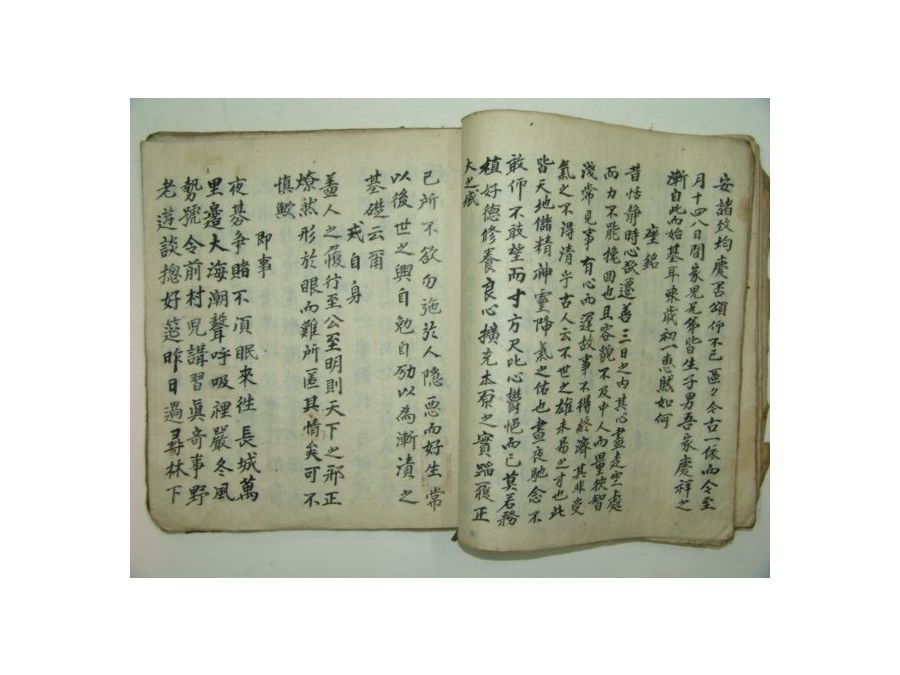 安諸致均慶否頌仰不已區々今古一依而今至
月十四八日間家兄兄弟皆生子男吾家慶祥之
漸自此而始基耳來歲初一惠然如何
座銘
昔恬静時心欲遷善三日之內其心盡走空處
而力不能挽回也且容貌不及中人而量狹智
淺常見事有心而運故事不得終濟其非受
氣之不得清乎古人云不世之雄未易之才也此
皆天地儲精神靈降氣之佑也晝夜馳念不
敢仰不敢望而寸方尺比心鬱悒而已莫若務
植好德修養良心擴充本原之實蹈履正
大之域
已所不欲勿施於人隱惡而好生常
以後世之興自勉自劢以為漸漬之
基礎云爾
戒自身
蓋人之履行至公至明則天下之邪正
燎然形於眼而難所匿其情矣可不
慎歟
即事
夜碁争賭不湏眠來徃長城萬
里邊大海潮聲呼吸裡嚴冬風
勢號令前村児講習眞奇事野
老逰談摠好莚昨日過尋林下